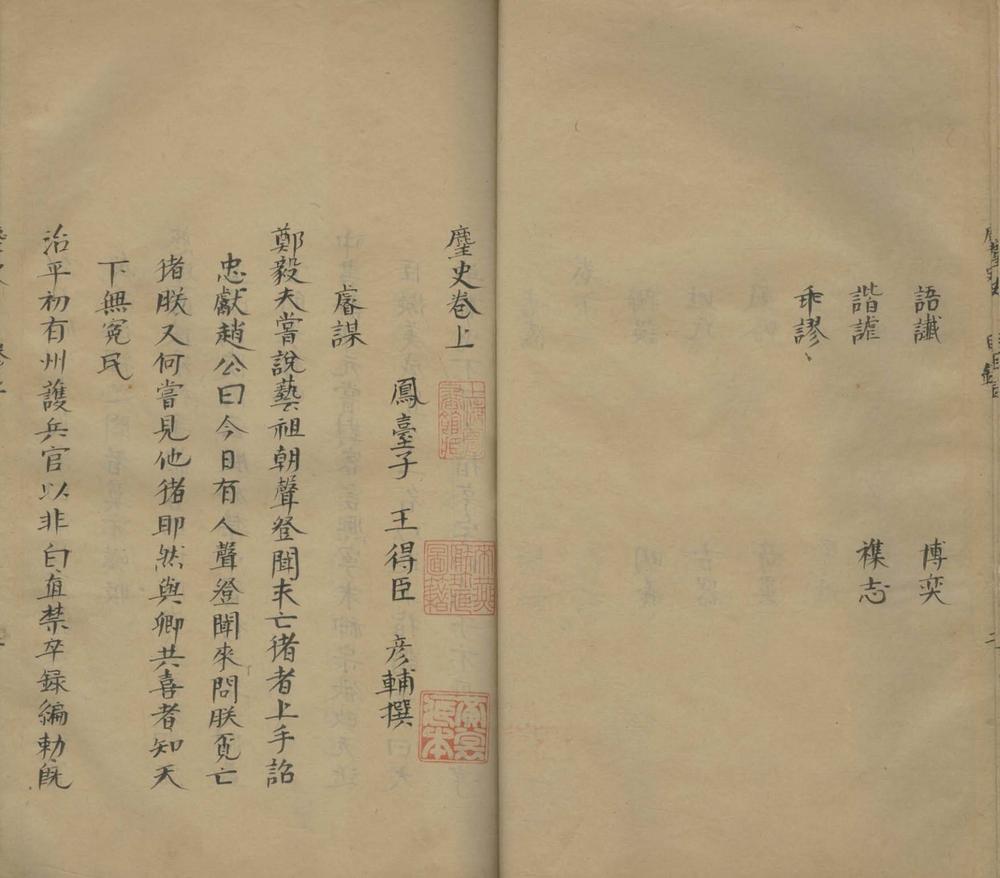 語讖 博奕
諧謔 襍志
乖謬
麈史卷上
鳳臺子 王得臣 彥輔撰
睿謀
鄭毅夫嘗說藝祖朝聲登聞求亡猪者上手詔
忠獻趙公曰今日有人聲登聞來問朕覓亡
猪朕又何嘗見他猪耶然與卿共喜者知天
下無冤民
治平初有州護兵官以非白直禁卒録編勅既